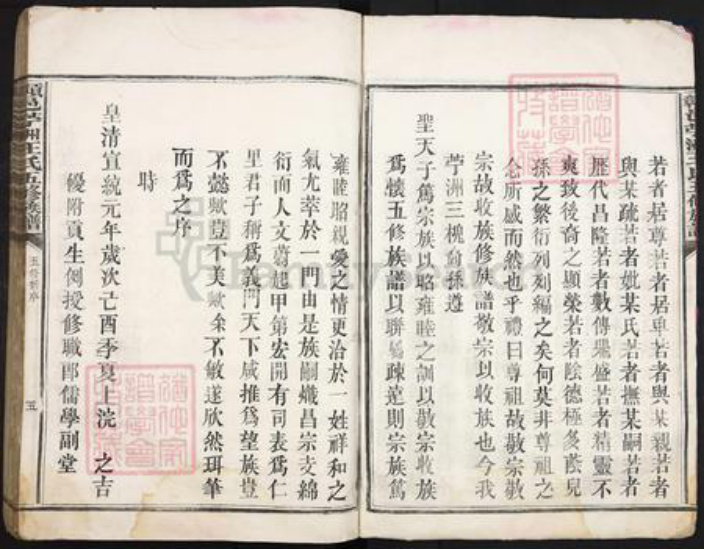 若者居尊若者居卑若者與某親若者
與某疏若者妣某氏若者撫某嗣若者
歷代昌隆若者數傳鼎盛若者精靈不
爽致後裔之顯榮若者陰德極多蔭兒
孫之繁衍列列編之矣何莫非尊祖之
念所感而然也乎禮曰尊祖故敬宗敬
宗故收族修族譜敬宗以收族也今我
苧洲三槐翁孫遵
聖天子篤宗族以昭雍睦之訓以敬宗收族
為懷五修族譜以聯屬疎遠則宗族篤
雍睦昭親愛之情更洽於一姓祥和之
氣尤萃於一門由是族嗣熾昌宗支綿
衍而人文蔚起甲第宏開有司表為仁
里君子稱為義門天下咸推為望族豈
不懿歟豈不美歟余不敏遂欣然珥筆
而為之序
時
皇清宣統元年歲次己酉季夏上浣 之吉
優附貢生例授修職郎儒學副堂
苧洲王氏五修族譜
五修新序
五